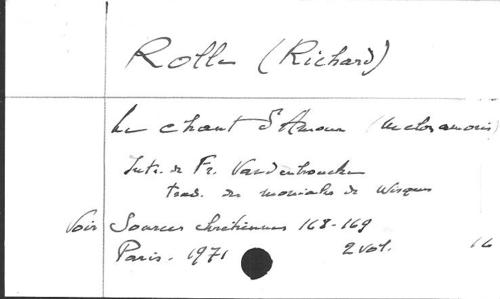 Rolle (Richard)
Le chant d'Amour (Melos amoris)
Intr. de Fr. Vandenbroucke
trad. des moniales de Wisques
Voir Sources chrétiennes 168-169
Paris. 1971 2 vol. 16